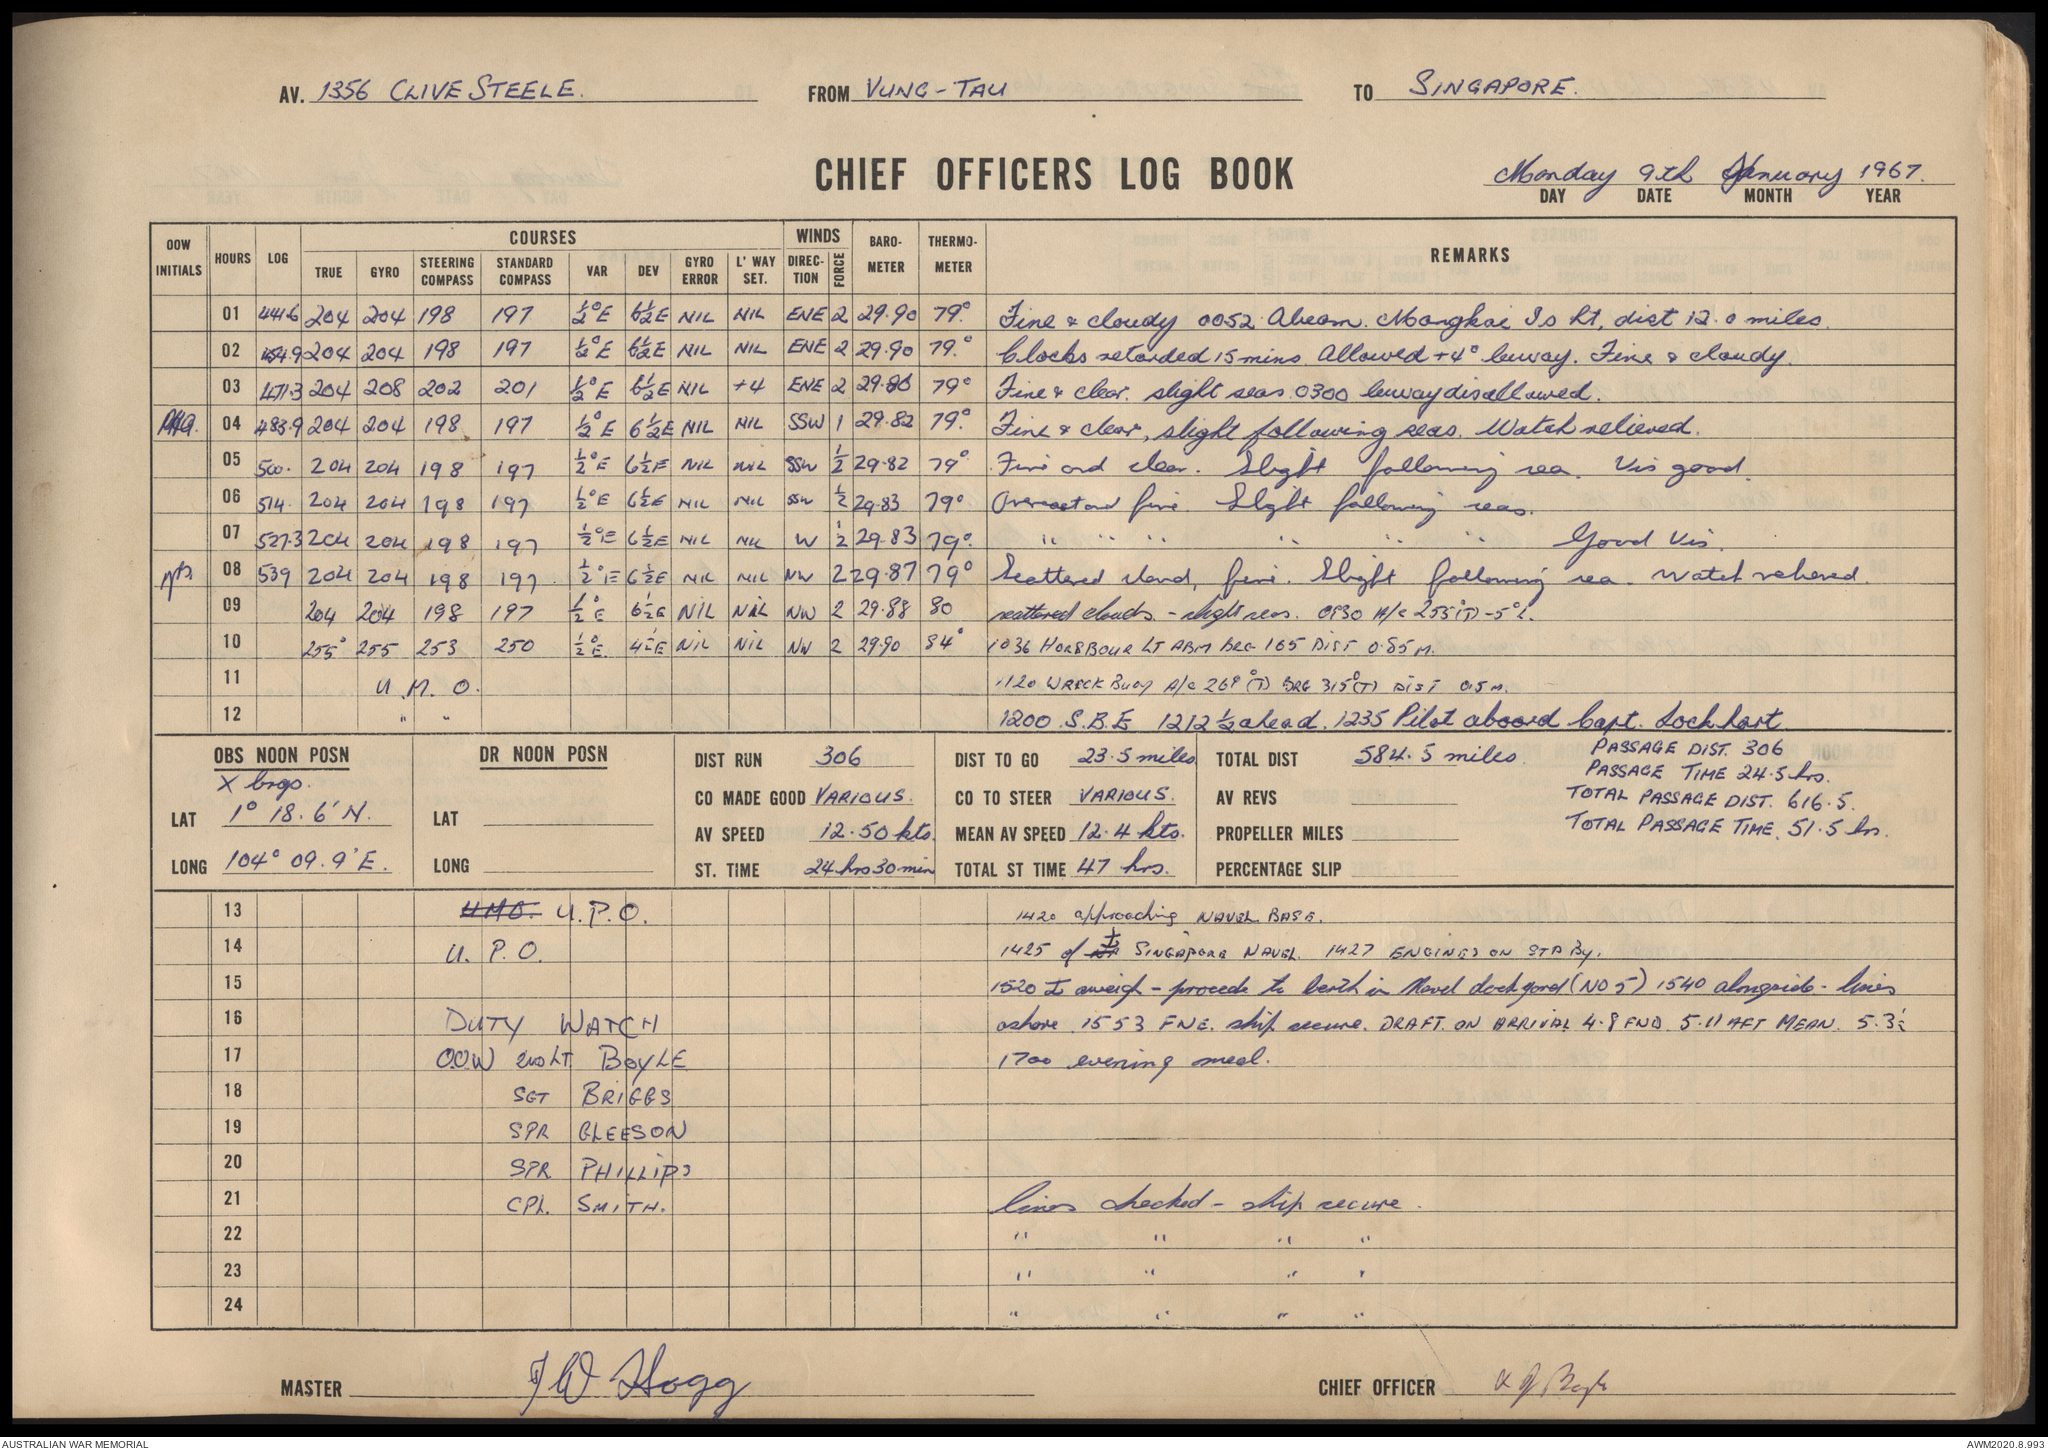 AV. 1356 CLIVE STEELE. FROM VUNG-TAU TO SINGAPORE.
CHIEF OFFICERS LOG BOOK
Monday 9th January 1967.
DAY DATE MONTH YEAR
OOW INITIALS HOURS LOG COURSES WINDS BARO-METER THERMO-METER REMARKS
TRUE GYRO STEERING COMPASS STANDARD COMPASS VAR DEV GYRO ERROR L' WAY SET. DIREC-TION FORCE
01 441.6 204 204 198 197 ½°E 6½E NIL NIL ENE 2 29.90 79° Fine & cloudy 0052 Abeam. Mangkai Is Lt, dist 12.0 miles.
02 454.9 204 204 198 197 ½°E 6½E NIL NIL ENE 2 29.90 79.° Clocks retarded 15 mins. Allowed +4° leeway. Fine & cloudy.
03 471.3 204 208 202 201 ½°E 6½E NIL +4 ENE 2 29.86 79° Fine & clear. slight seas. 0300 leeway disallowed.
04 483.9 204 204 198 197 ½°E 6½E NIL NIL SSW 1 29.82 79.° Fine & clear, slight following seas. Watch relieved.
05 500. 204 204 198 197 ½°E 6½E NIL NIL SSW ½ 29.82 79° Fine and clear. Slight following sea. Vis good.
06 514. 204 204 198 197 ½°E 6½E NIL NIL SSW ½ 29.83 79° Overcast and fine. Slight following seas.
07 527.3 204 204 198 197 ½°E 6½E NIL NIL W ½ 29.83 79°. " " " " " " Good Vis.
08 539 204 204 198 197 ½°E 6½E NIL NIL NW 2 29.87 79° Scattered cloud, fine. Slight following sea. Watch relieved.
09 204 204 198 197 ½°E 6½E NIL NIL NW 2 29.88 80 scattered clouds - slight seas. 0930 A/c 255°(T) -5°L.
10 255° 255 253 250 ½°E 4½E NIL NIL NW 2 29.90 84° 1036 HORSBOUR LT ABM BRG 165 DIST 0.85 M.
11 U.M.O. 1120 WRECK BUOY A/c 269°(T) BRG 315°(T) DIST 0.5 M.
12 " " 1200 S.B.E 1212 ½ ahead. 1235 Pilot aboard Capt. Lockhart.
OBS NOON POSN DR NOON POSN DIST RUN 306 DIST TO GO 23.5 miles TOTAL DIST 584.5 miles PASSAGE DIST. 306
X brgs. PASSAGE TIME 24.5 hrs.
CO MADE GOOD VARIOUS. CO TO STEER VARIOUS. AV REVS TOTAL PASSAGE DIST. 616.5.
LAT 1° 18.6'N. LAT AV SPEED 12.50 kts. MEAN AV SPEED 12.4 kts. PROPELLER MILES TOTAL PASSAGE TIME. 51.5 hrs.
LONG 104° 09.9'E. LONG ST. TIME 24 hrs 30 min TOTAL ST TIME 47 hrs. PERCENTAGE SLIP
13 U.M.O. U.P.O. 1420 approaching NAVEL BASE.
14 U. P.O. 1425 of ⚓ SINGAPORE NAVEL. 1427 ENGINES ON STD BY.
15 1520 ⚓ aweigh - procede to berth in Navel dockyard (NO 5) 1540 alongside - lines
16 DUTY WATCH ashore. 1553 F.N.E. ship secure. DRAFT. ON ARRIVAL 4.8 FWD 5.11 AFT MEAN. 5.3½
17 O.O.W 2ND LT BOYLE 1700 evening meal.
18 SGT BRIGGS
19 SPR GLEESON
20 SPR PHILLIPS
21 CPL. SMITH. lines checked - ship secure.
22 " " " "
23 " " " "
24 " " " "
MASTER J W Hogg CHIEF OFFICER
AUSTRALIAN WAR MEMORIAL AWM2020.8.993